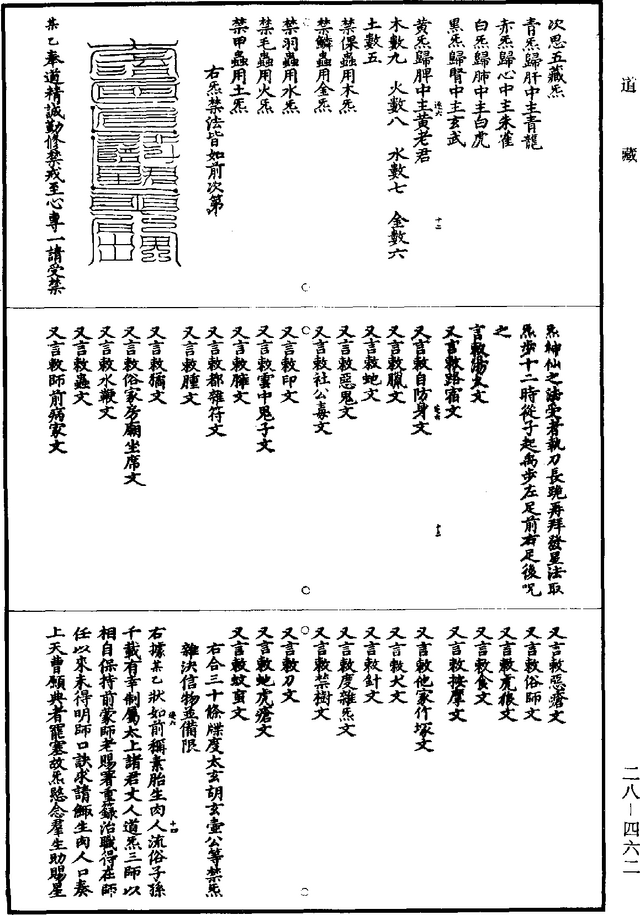 道藏
次思五藏炁
青炁歸肝中主青龍
赤炁歸心中主朱雀
白炁歸肺中主白虎
黑炁歸腎中主玄武
黃炁歸脾中主黃老君
木數九　火數八　水數七　金數六
土數五
禁倮蟲用木炁
禁鱗蟲用金炁
禁羽蟲用水炁
禁毛蟲用火炁
禁甲蟲用土炁
右炁禁法皆如前次第
某乙奉道精誠勤修禁戒至心專一請受禁
炁神仙之法受者執刀長跪再拜發星法取
炁步十二時從子起禹步左足前右足後呪
之
言敕湯火文
又言敕路宿文
又言敕自防身文
又言敕腫文
又言敕蛇文
又言敕惡鬼文
又言敕社公毒文
又言敕印文
又言敕雲中鬼子文
又言敕都雜符文
又言敕腫文
又言敕俗家房廟坐席文
又言敕水鞭文
又言敕蠱文
又言敕師前病家文
又言敕惡瘡文
又言敕俗師文
又言敕虎狼文
又言敕食文
又言敕按摩文
又言敕他家作塚文
又言敕犬文
又言敕針文
又言敕度雜炁文
又言敕禁樹文
又言敕刀文
又言敕蛇虎瘡文
又言敕蚊䖟文
右合三十條牒度太玄胡玄壺公等禁炁
雜決信物並備限
右據某乙狀如前稱素胎生肉人流俗子孫
千載有幸制屬太上諸君丈人道炁三師以
相自保持前蒙師老賜署重籙治職得在師
任以來未得明師口訣求請鄙生肉人口奏
上天曹願典者罷塞故炁愍念羣生助賜星
十二
十三
十四
二八-四六二